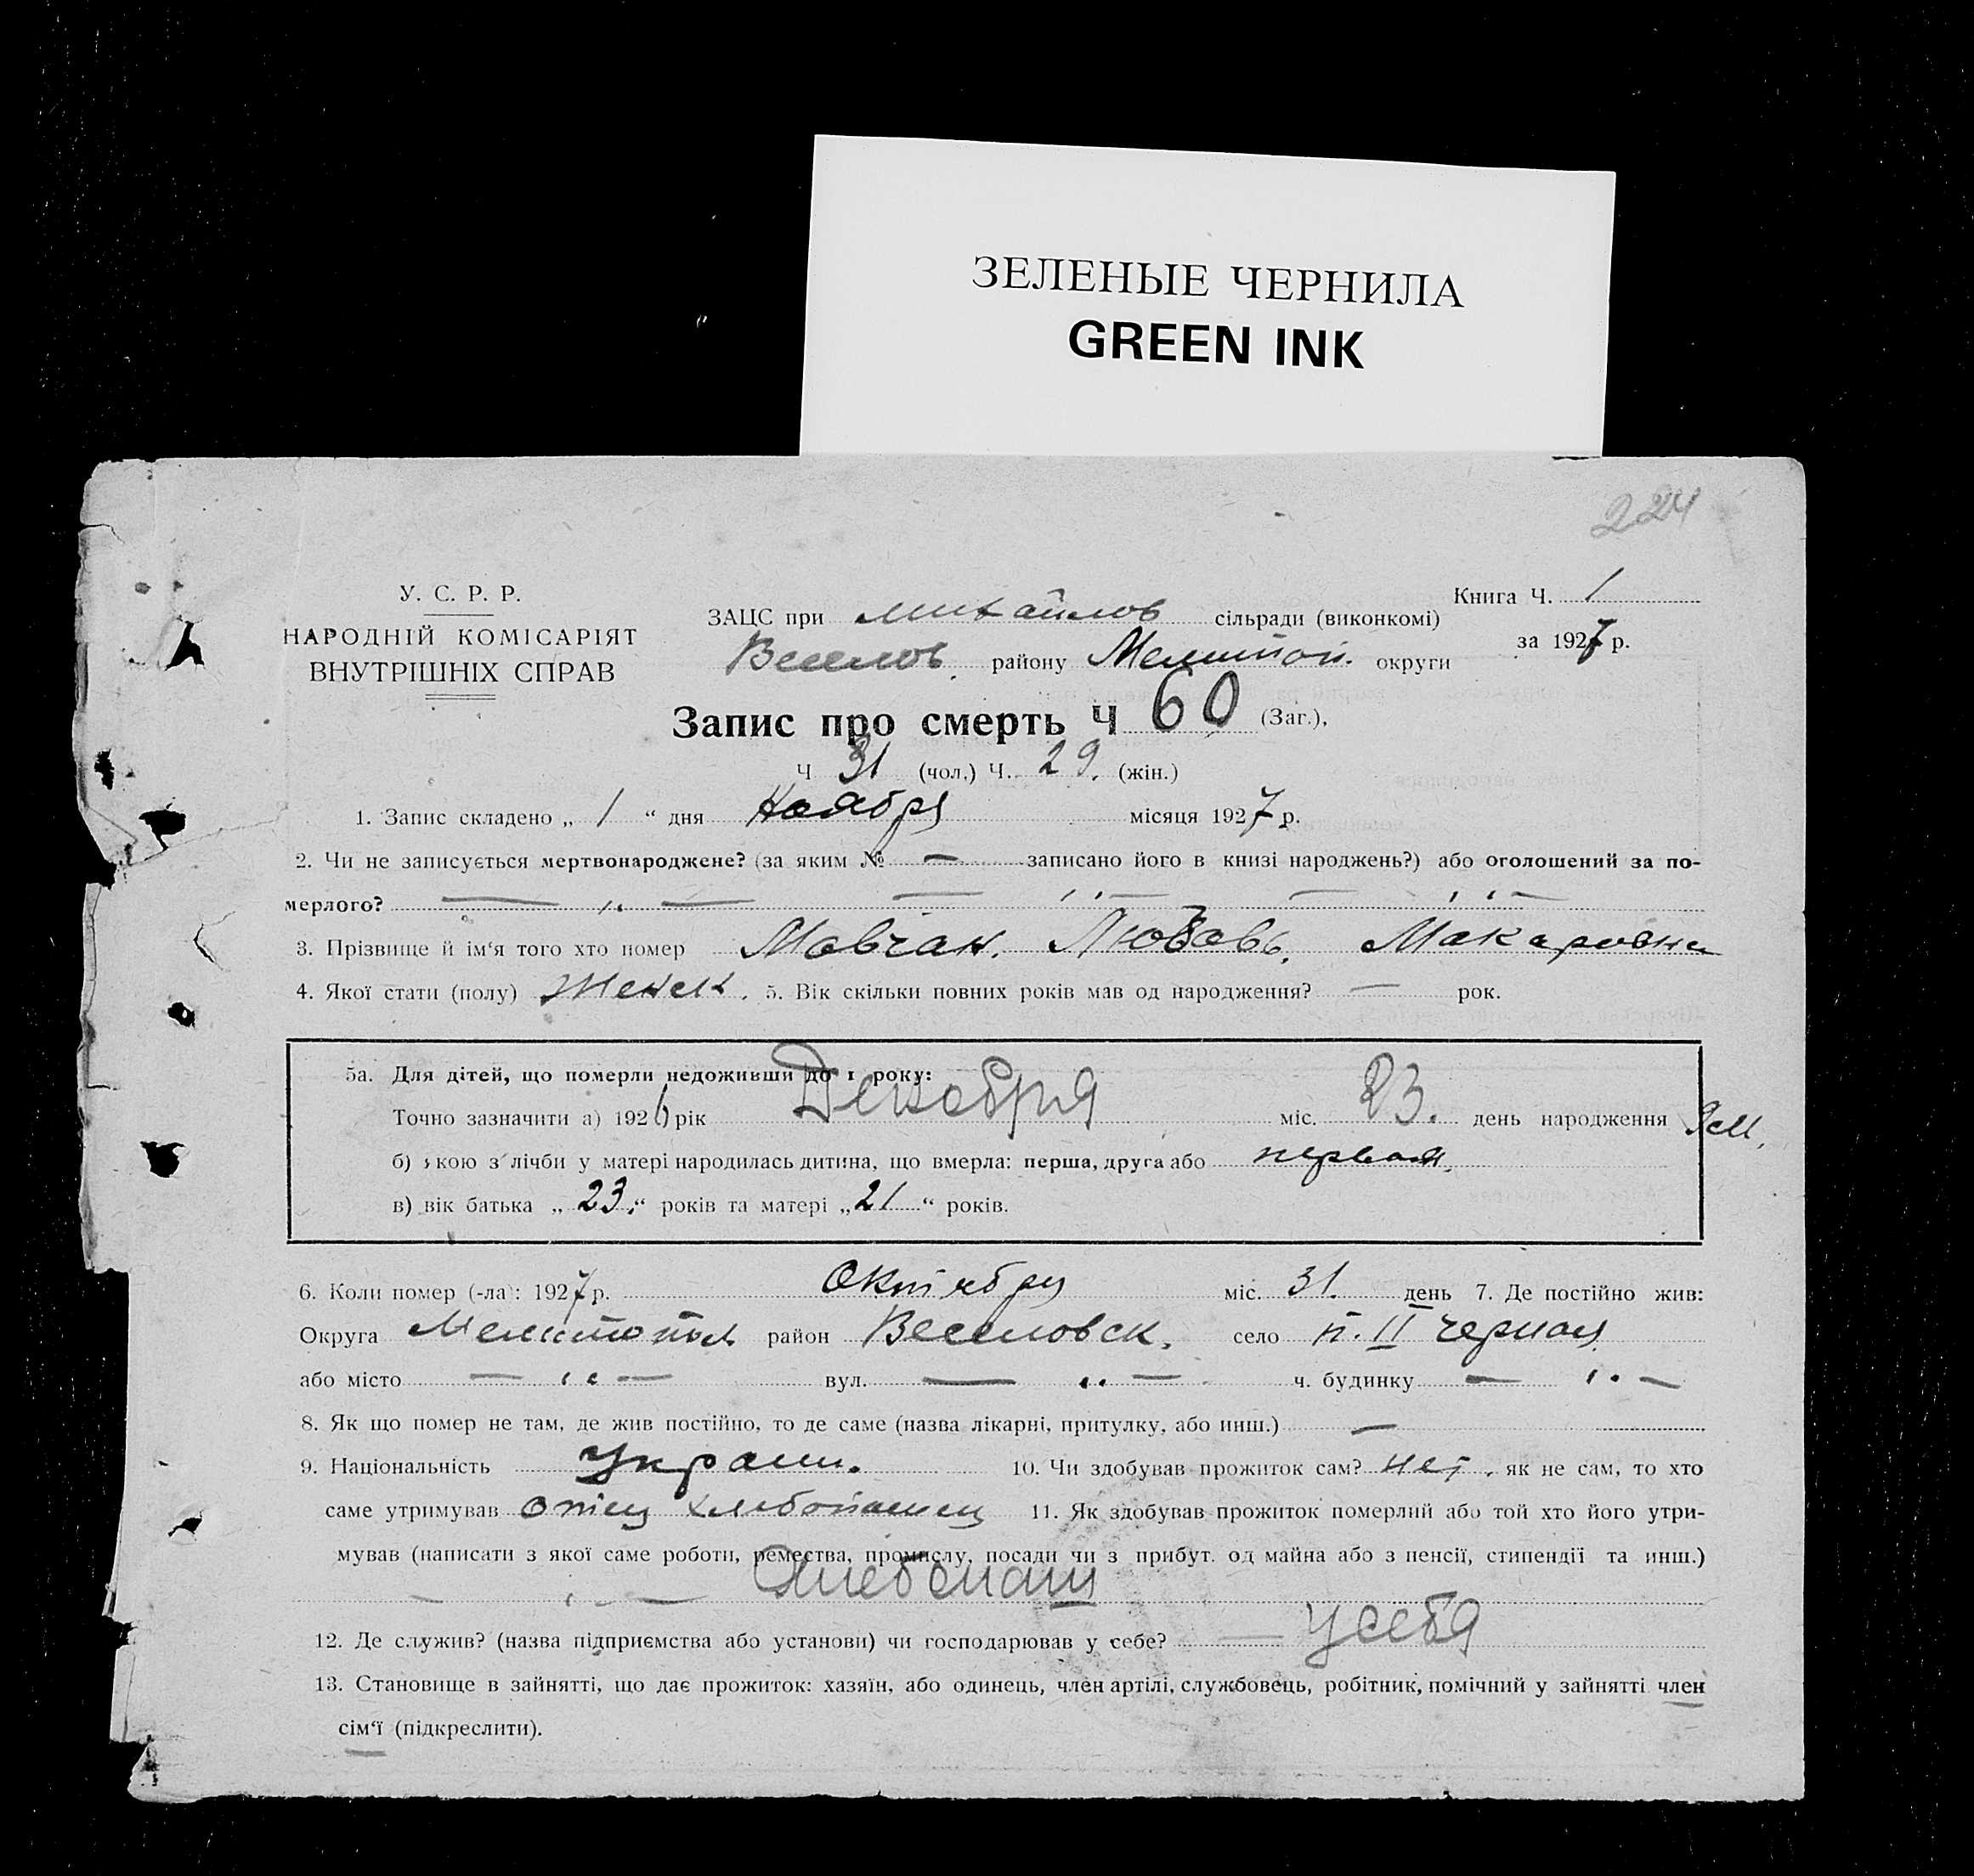 ЗЕЛЕНЫЕ ЧЕРНИЛА
GREEN INK
224
У. С. Р. Р.
НАРОДНІЙ КОМІСАРІЯТ
ВНУТРІШНІХ СПРАВ
Книга Ч. 1
за 1927 р.
ЗАЦС при Михайлов сільради (виконкомі)
Веселов. району Мелитоп. округи
Запис про смерть Ч 60 (Заг.),
Ч 31 (чол.) Ч. 29. (жін.)
1. Запис складено „ 1 “ дня Ноября місяця 1927 р.
2. Чи не записується мертвонароджене? (за яким № — записано його в книзі народжень?) або оголошений за по-
мерлого?
3. Прізвище й ім‘я того хто помер Мовчан. Любовь. Макаровна
4. Якої стати (полу) Женск. 5. Вік скільки повних років мав од народження? — рок.
5а. Для дітей, що померли недоживши до 1 року:
Точно зазначити а) 1926 рік Декабря міс. 23. день народження 9 м.
б) якою з лічби у матері народилась дитина, що вмерла: перша, друга або первая.
в) вік батька „ 23. “ років та матері „ 21 “ років.
6. Коли помер (-ла): 1927 р. Октября міс. 31. день 7. Де постійно жив:
Округа Мелитопол район Веселовск. село п. II Черная
або місто — „ — вул. — „ — ч. будинку — „ —
8. Як що помер не там, де жив постійно, то де саме (назва лікарні, притулку, або инш.) —
9. Національність Украин. 10. Чи здобував прожиток сам? нет. як не сам, то хто
саме утримував отец хлебопашец 11. Як здобував прожиток померлий або той хто його утри-
мував (написати з якої саме роботи, ремества, промислу, посади чи з прибут. од майна або з пенсії, стипендії та инш.)
12. Де служив? (назва підприємства або установи) чи господарював у себе? — у себя
13. Становище в зайнятті, що дає прожиток: хазяїн, або одинець, член артілі, службовець, робітник, помічний у зайнятті член
сім‘ї (підкреслити).